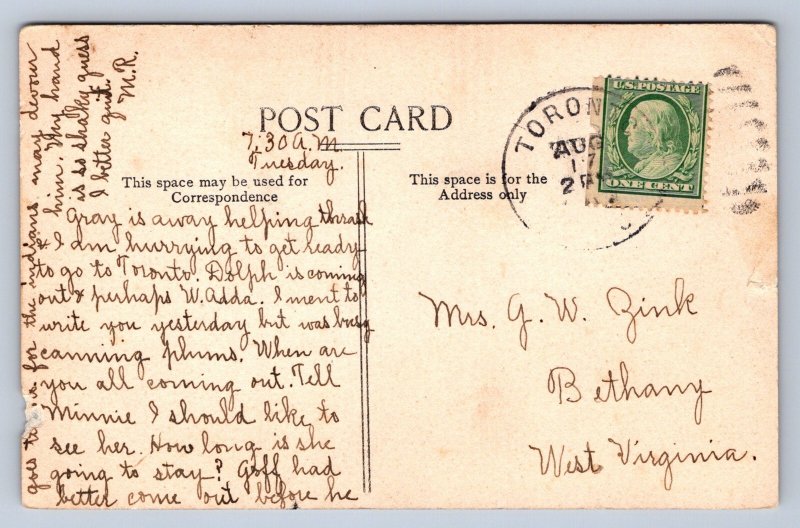 POST CARD
This space may be used for
Correspondence
This space is for the
Address only
TORON
AUG
17
2 PM
U.S. POSTAGE
ONE CENT
7:30 A.M.
Tuesday.
Gray is away helping thrash
& I am hurrying to get ready
to go to Toronto. Dolph is coming
out & perhaps W. Adda. I ment to
write you yesterday but was busy
canning plums. When are
you all coming out. Tell
Minnie I should like to
see her. How long is she
going to stay? Goff had
better come out before he
goes for the indians may devour
him. My hand
is so shakey guess
I better quit.
M.R.
Mrs. G. W. Zink
Bethany
West Virginia.